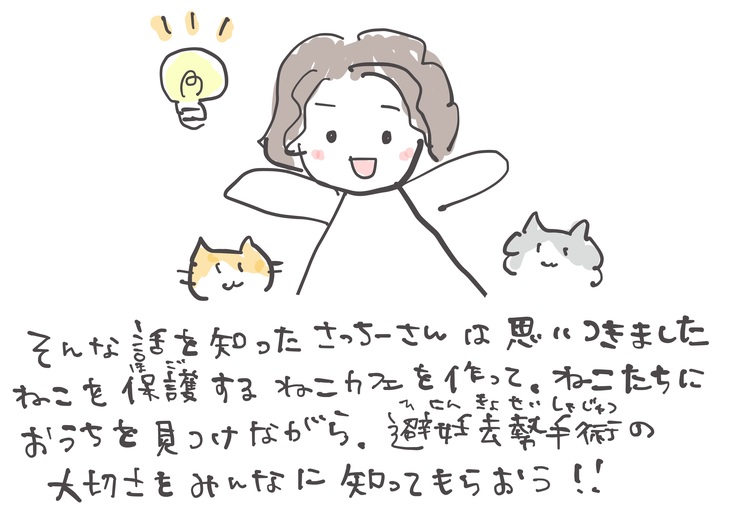 そんな話を知ったさっちーさんは思いつきました
ねこを保護するねこカフェを作って、ねこたちに
おうちを見つけながら、避妊去勢手術の
大切さをみんなに知ってもらおう!!